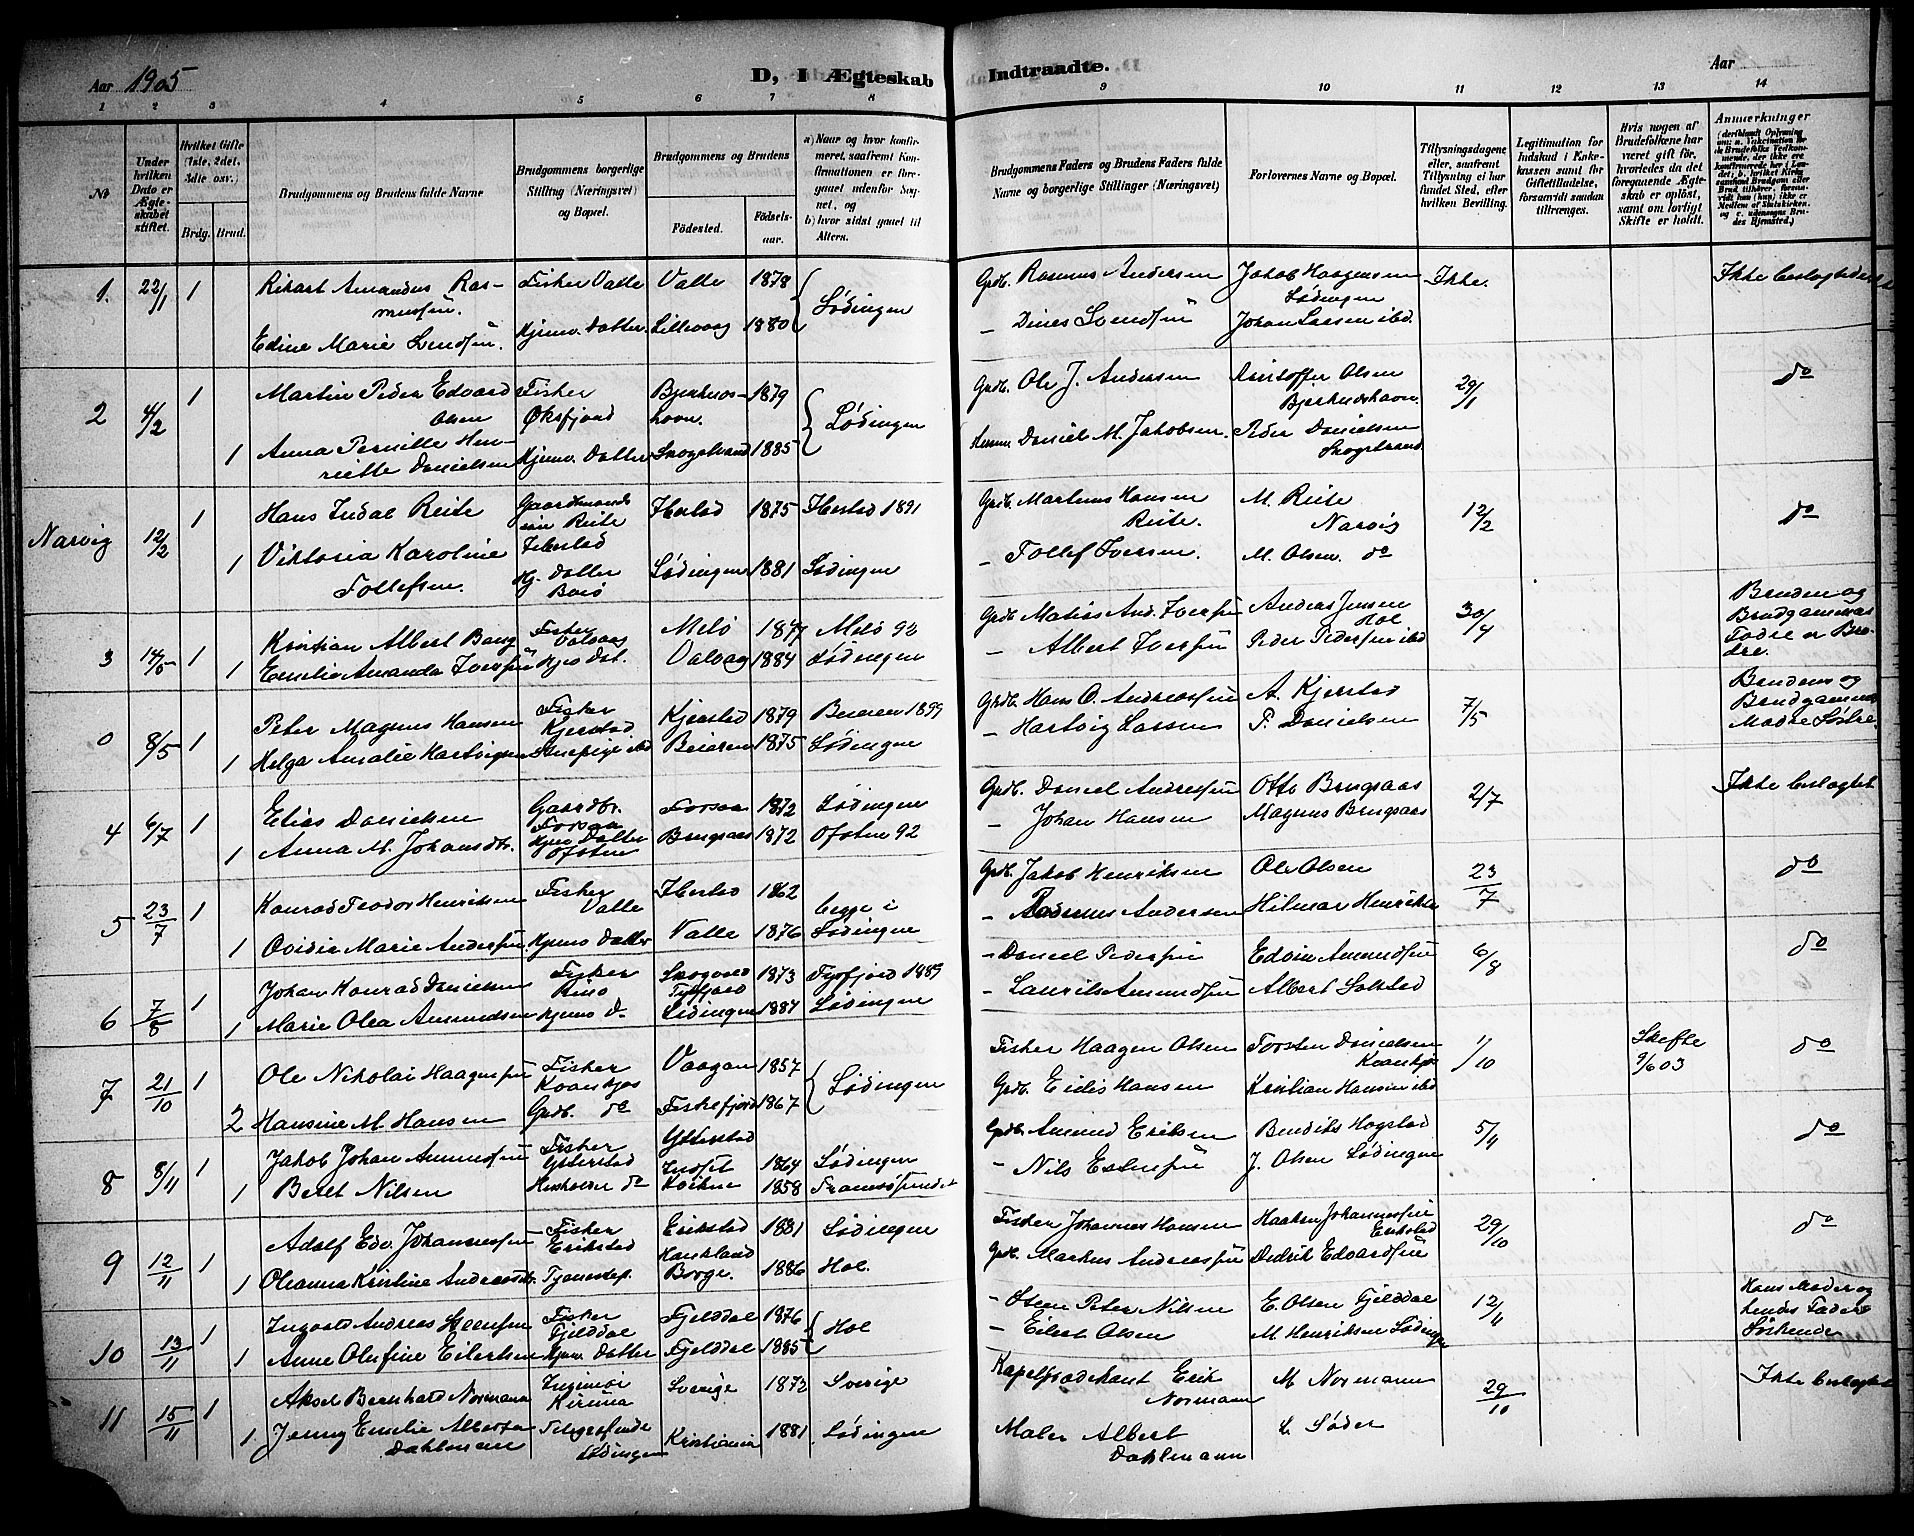 Aar 1905
D, I Ægteskab
Indtraadte.
Aar
1 2 3 4 5 6 7 8 9 10 11 12 13 14
No
Under hvilken Dato er Ægteskabet stiftet.
Hvilket Gifte (1ste, 2det, 3die osv.)
Brdg. Brud.
Brudgommens og Brudens fulde Navne
Brudgommens borgerlige Stilling (Næringsvei) og Bopæl.
Brudgommens og Brudens
Fødested.
Fødselsaar.
a) Naar og hvor konfirmeret, saafremt Konfirmationen er foregaaet udenfor Sognet, og
b) hvor sidst gaaet til Alters.
Brudgommens Faders og Brudens Faders fulde Navne og borgerlige Stillinger (Næringsvei)
Forlovernes Navne og Bopæl.
Tillysningsdagene eller, saafremt Tillysning ei har fundet Sted, efter hvilken Bevilling.
Legitimation for Indskud i Enkekassen samt for Giftetilladelse, forsaavidt saadan tiltrænges.
Hvis nogen af Brudefolkene har været gift før, hvorledes da det foregaaende Ægteskab er opløst, samt om lovligt Skifte er holdt.
Anmærkninger
1. 22/1 1 Rikart Amandus Rasmussen. Fisker Valle Valle 1878 Lødingen Grdb. Rasmus Andersen Jakob Haagensen Lødingen Ikke. Ikke beslægtede
Edine Marie Svendsen. Kjenv. Datter. Lillevaag 1880 – Dines Svendsen Johan Larsen ibd.
2 4/2 1 Martin Peder Edvard Olsen Fisker Øksfjord 1879 Lødingen Grdb. Ole J. Andersen Kristoffer Olsen 29/1 do
1 Anna Pernille Henriette Danielsen Kjenv. Datter Skogstrand 1885 Daniel M. Jakobsen. Peder Danielsen Skogstrand
Narvig 12/2 1 Hans Indal Reite Reite Ibestad Ibestad 1875 Ibestad 1891 Grdb. Martinus Hansen Reite. M. Reite Narvig 12/2 do
1 Viktoria Karoline Tollefsen. Kj. Datter Lødingen 1881 Lødingen – Tollef Iversen. M. Olsen. do
3 14/5 1 Kristian Albert Bang Fisker Valvaag Melø Melø 92 Grdb. Matias And. Iversen Andreas Jensen Hol 30/4 Bruden og Brudgommens Fædre er Brødre.
1 Emilie Amanda Iversen Kjens Dat. Valvag 1884 Lødingen – Albert Iversen Peder Pedersen ibd
0 8/5 1 Peter Magnus Hansen Fisker Kjerstad Kjerstad 1879 Beiaren 1899 Grdb. Hans O. Andreassen A. Kjerstad 7/5 Brudens og Brudgommens Mødre Søstre.
1 Helga Amalie Hartvigsen ibd Beiaren 1875 Lødingen – Hartvig Larsen P. Danielsen
4 6/7 1 Elias Danielsen Gaardbr. Forsaa Forsaa 1872 Lødingen Grdb. Daniel Andreassen Otto Brugsaas 2/7 Ikke beslægtet
1 Anna M. Johansdtr. Kjens Datter Ofoten Brugsaas 1872 Ofoten 92 – Johan Hansen Magnus Brugsaas
5 23/7 1 Konrad Teodor Henriksen Fisker Valle Ibestad 1862 begge i Lødingen Grdb. Jakob Henriksen Ole Olsen 23/7 do
1 Ovidia Marie Andersen. Kjens Datter Valle 1876 – Rasmus Andersen Hilmar Henriksen
6 7/8 1 Johan Konrad Danielsen Fisker Rinø Tysfjord 1873 Tysfjord 1889 – Daniel Pedersen Edvin Amundsen 6/8 do
1 Marie Olea Amundsen Kjens D. Lødingen 1884 Lødingen – Laurits Amundsen Albert Solstad
7 21/10 1 Ole Nikolai Haagensen Fisker Kvankjos Vaagan 1857 Lødingen Fisker Haagen Olsen Torsten Danielsen 1/10 Skifte 9/6 03 do
2 Hansine M. Hansen Grdb. do Fiskefjord 1867 Grdb. Eidis Hansen Kristian Hansen ibd
8 8/11 1 Jakob Johan Amundsen Fisker Ytterstad Ytterstad 1864 Lødingen Grdb. Amund Eriksen Bendiks Hogstad 5/11 do
1 Beret Nilsen Husholder do Indset 1858 – Nils Estensen J. Olsen Lødingen
9 12/11 1 Adolf Edv. Johannessen Fisker Erikstad Erikstad 1881 Lødingen Fisker Johannes Hansen Haakon Johannessen Erikstad 29/10 do
1 Oleanna Kristine Andreasdtr. Tjenestep. Haukland Borge. 1886 Hol. Grdb. Markus Andreassen Didrik Edvardsen
10 13/11 1 Ingvald Andreas Steensen Fisker Fjelddal Fjelddal 1876 Hol – Steen Peter Nilsen E. Olsen Fjelddal 12/11 Hans Moder og hendes Fader Søskende
1 Anne Olufine Eilertsen Kjenv. Datter Fjelddal 1885 – Eilert Olsen M. Henriksen Lødingen
11 15/11 1 Aksel Bernhard Normann Ingeniør Kiruna Sverige 1872 Sverige Erik Normann M Normann 29/10 Ikke beslægtet
1 Jenny Emilie Alberta Dahlmann Lødingen Kristiania 1881 Lødingen Maler Albert Dahlmann L Søder